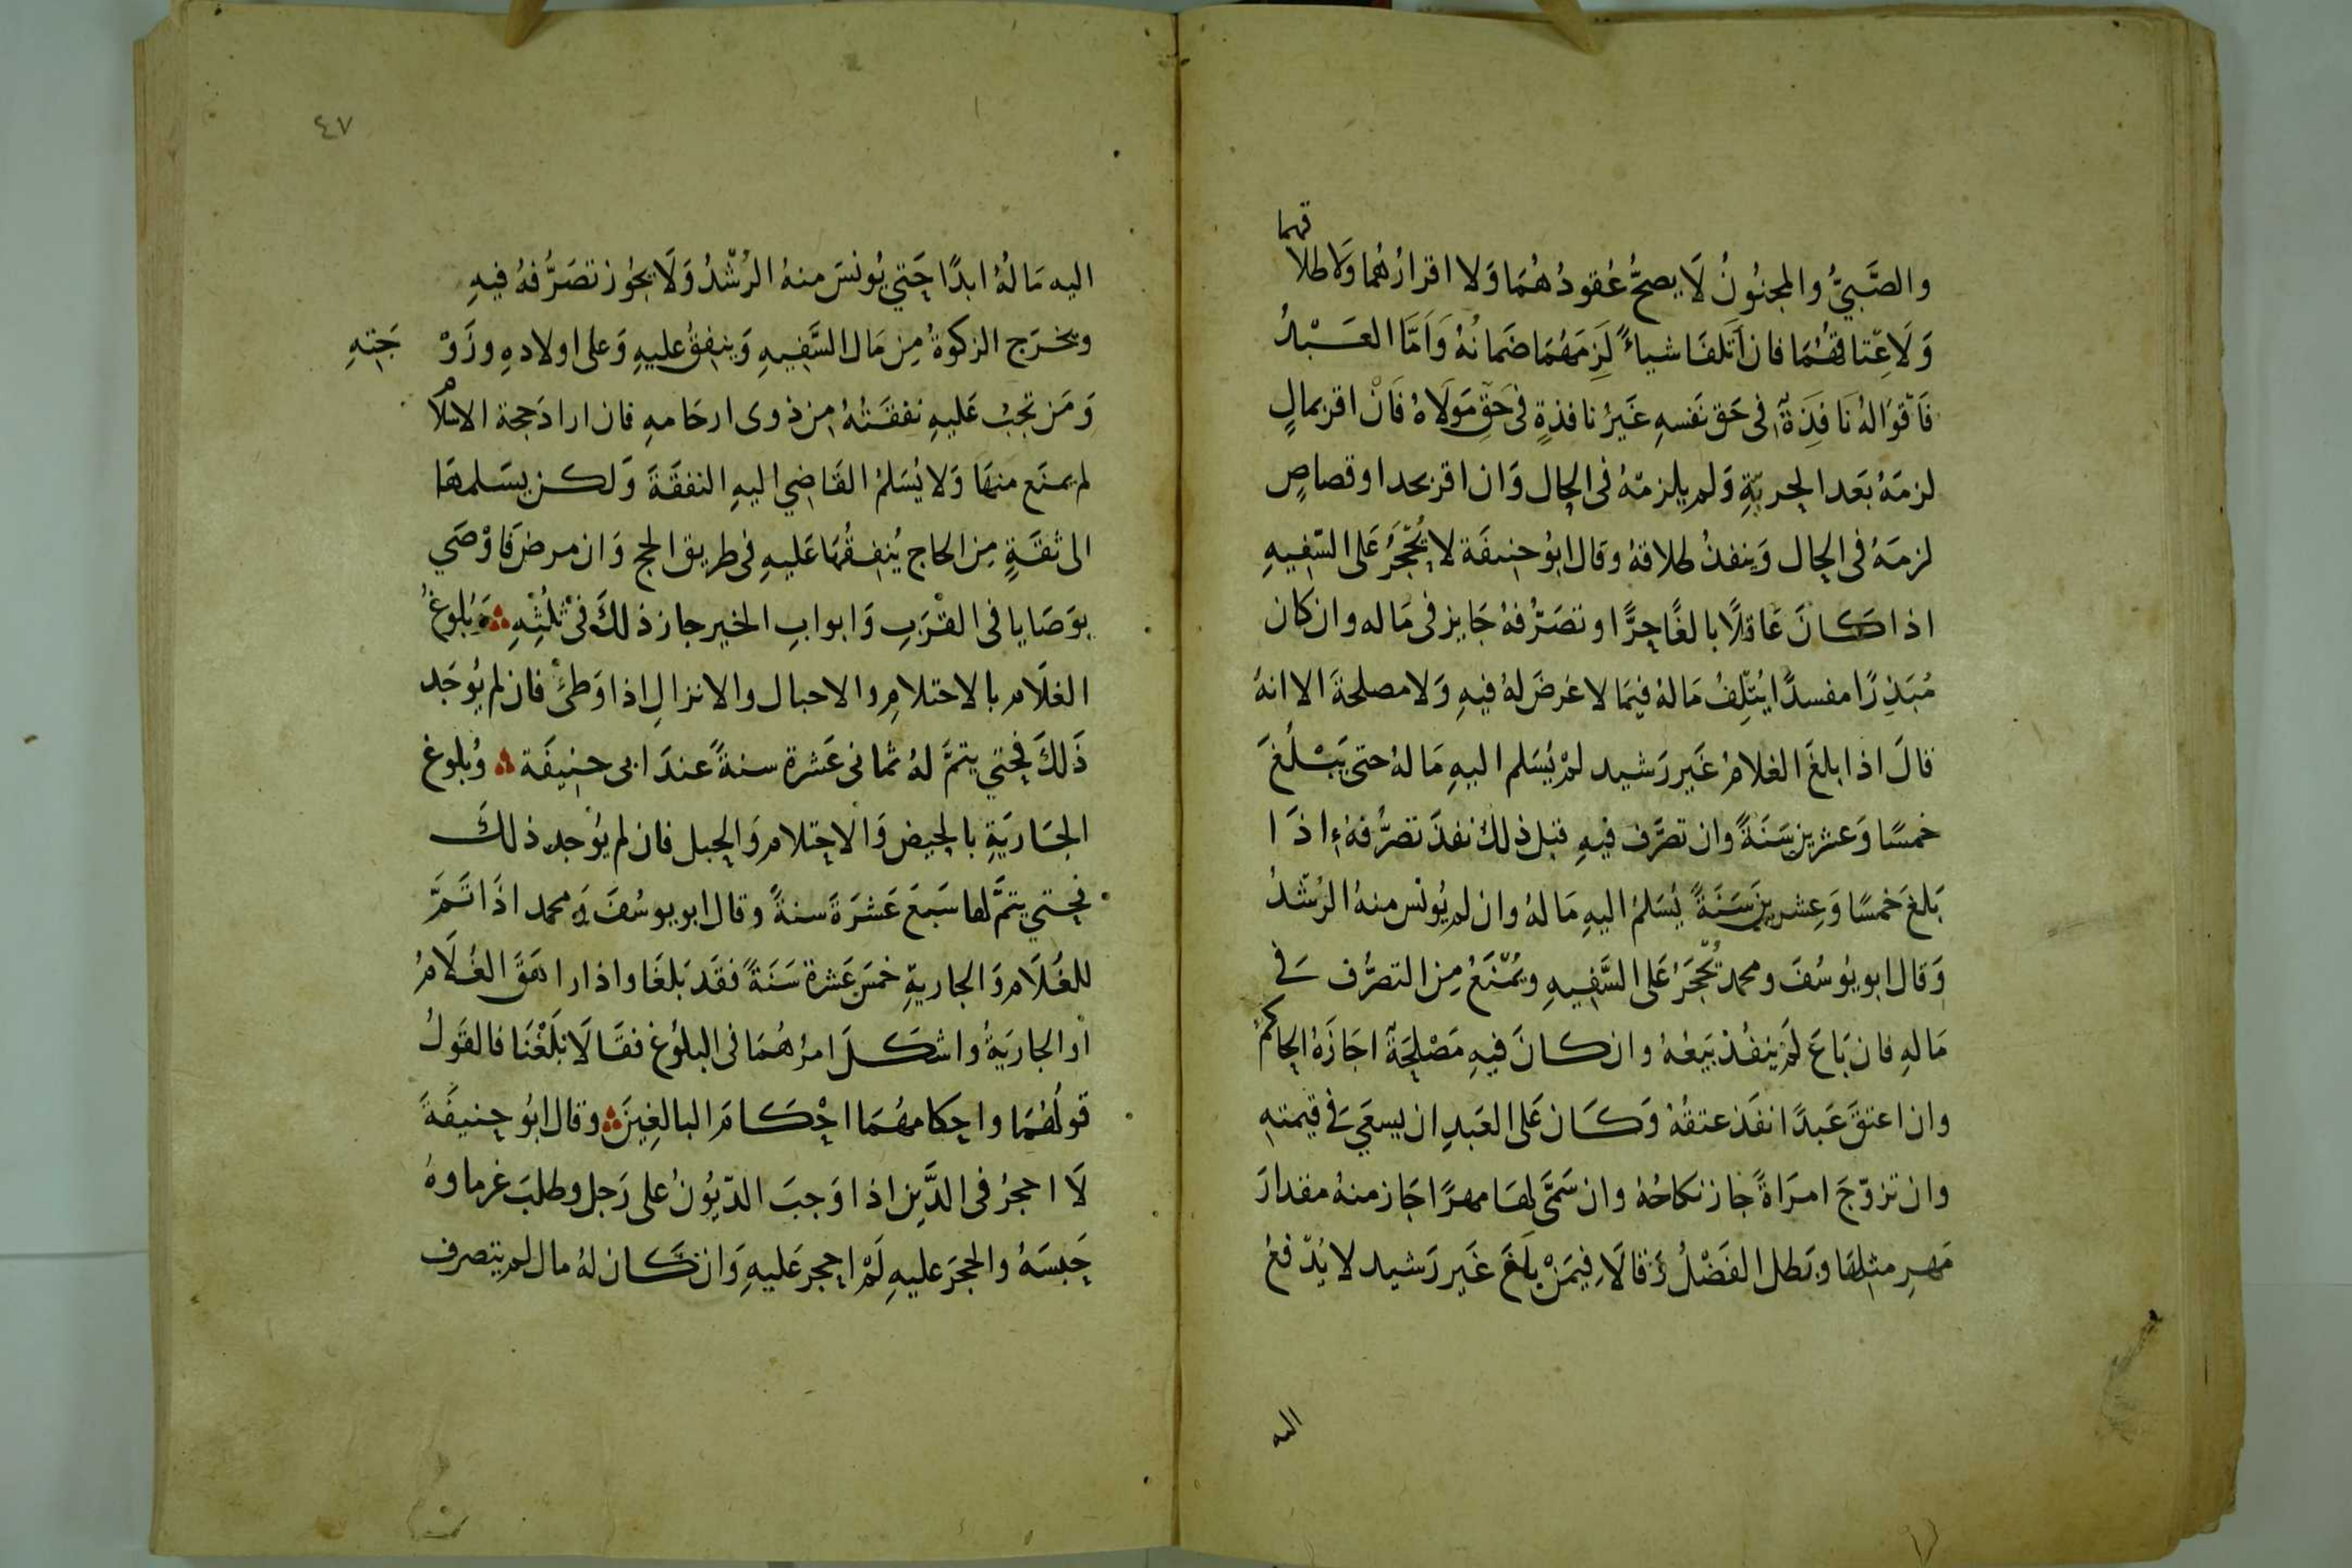 والصَّبيُّ والمجنُونُ لَا يصحُّ عُقودُهُمَا وَلا اقرارُهُما وَلا طلاقهما
وَلَا عِتاقهُمَا فان أَتَلفَا شياءً لَزِمَهُمَا ضَمانُهُ وَاَمَّا العَبْدُ
فَأقوَالهُ نَافذَةٌ فى حَق نَفسهِ غَيرُ نافذةٍ فى حَقِّ مَولَاهُ فَانْ اقر بمالٍ
لزمَهُ بَعَد الحريّةِ وَلم يلزمْهُ فى الحال وَان اقر بحد او قصاصٍ
لزمَهُ فى الحال وَينفذُ طلاقهُ وقال ابوُ حنيفَة لا يُحْجَرُ عَلى السّفيهِ
اذا كانَ عَاقلًا بالغًا حرًّا و تصَرُّفهُ جَايز فى مَاله وان كان
مُبَذِرًا مفسدًا يُتْلِفُ مَالهُ فيمَا لا غرضَ لهُ فيهِ وَلا مصلحةَ الا انهُ
قالَ اذا بلغَ الغلامُ غَير رَشيد لمْ يُسَلم اليهِ مَالهُ حتى يَبْلُغَ
خمسًا وَعشرين سَنَةً وان تصرَّف فيهِ قبل ذلكَ نفذَ تصرُّفهُ اذَا
بَلغَ خمسًا وَعِشرينَ سَنَةً يُسَلمُ اليهِ مَالهُ وان لم يُونس منهُ الرُشدُ
وَقال ابو يوُسُفَ ومحمد يُحْجَرُ عَلى السَّفيهِ ويُمْنَعُ مِن التصرُّف فى
مَالهِ فان بَاعَ لَمْ ينفُذ بَيعُهُ وان كانَ فيهِ مَصْلحَةٌ اجَازَهُ الحاكمُ
وان اعتقَ عَبدًا نفَذ عتقُهُ وَكان عَلى العَبدِ ان يسعَي فى قيمتهِ
وان تزوّجَ امرَاةً جاز نكاحُهُ وان سَمَّى لهَا مهرًا جَاز منهُ مقدارَ
مَهرِ مثلهَا وبَطل الفَضْلُ وَقالَا فِيمَنْ بلَغَ غَير رَشيد لا يُدْفعُ
اليه
٤٧
اليه مَالُهُ ابدًا حَتي يُونسَ منهُ الرُشْدُ وَلَا يجُوز تصَرُّفهُ فيهِ
وتخرَج الزكوةُ مِن مَال السَّفيهِ وَينفقُ عليهِ وَعلى اولادهِ وزَوْ جَتهِ
وَمَن تجبُ عَليهِ نفقَتُهُ مِن ذوى ارحَامهِ فان ارادَ حجة الاسلام
لم يمنَع منهَا وَلا يُسَلمُ القَاضي اليهِ النفقَةَ وَلكن يسَلمهَا
الى ثقَةٍ مِن الحاج يُنفقُهَا عَليهِ فى طريق الحج وَان مرضَ فاوْصَي
بوَصَايا فى القرَبِ وَابوابِ الخير جاز ذلكَ فى ثلُثِهِ وَبُلوغُ
الغلَام بالاحتلامِ والاحبال والانزالِ اذا وَطئَ فان لم يُوجَد
ذَلكَ فحتي يتمَّ لهُ ثمانى عَشرة سنةً عندَ ابى حنيفَة وُبلوغ
الجَاريَةِ بالحيض وَالاحتلام وَالحبل فان لم يوُجد ذلكَ
فحتي يتمَّ لها سَبعَ عَشرَةَ سنةً وقال ابو يوسُفَ وَ محمد اذَا تَمَّ
للغُلَام وَالجاريةِ خمسَ عَشرة سَنَةً فقَد بَلغَا واذا راهَقَ الغُلَامُ
اْو الجاريَةُ واشكلَ امرُهُمَا فى البلوُغ فقَالَا بَلَغْنَا فالقَولُ
قولُهُمَا واحكامهُمَا احْكامَ البالغِينَ وقال ابوُ حنيفَةَ
لَا احجرُ فى الدَّين اذا وَجبَ الدّيُونُ على رَجل وطلبَ غرماوهُ
حَبسَهُ والحجرَ عليهِ لَمْ احجر عَليهِ وَان كان لهُ مال لم يتصرف